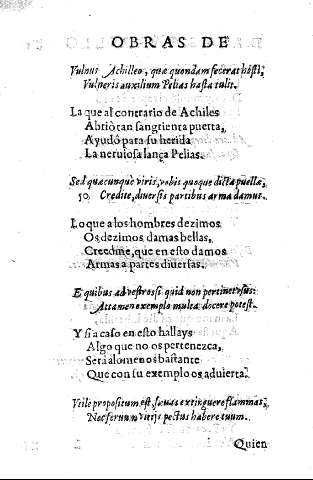 OBRAS DE
Vulnus Achilleo, quæ quondam fecerat hosti,
Vulneris auxilium Pelias hasta tulit.
La que al contrario de Achiles
Abriò tan sangrienta puerta,
Ayudó para su herida
La neruiosa lança Pelias.
Sed quæcunque viris, vobis quoque dicta puellæ,
50. Credite, diuersis partibus arma damus.
Lo que a los hombres dezimos
Os dezimos damas bellas,
Creedme, que en esto damos
Armas a partes diuersas.
E quibus ad vestros si quid non pertinet vsus:
Attamen exemplo multa docere potest.
Y si a caso en esto hallays
Algo que no os pertenezca,
Será alomenos bastante
Que con su exemplo os aduierta.
Vtile propositum est, sæuas extinguere flammas,
Nec seruum vitijs pectus habere tuum.
Quien